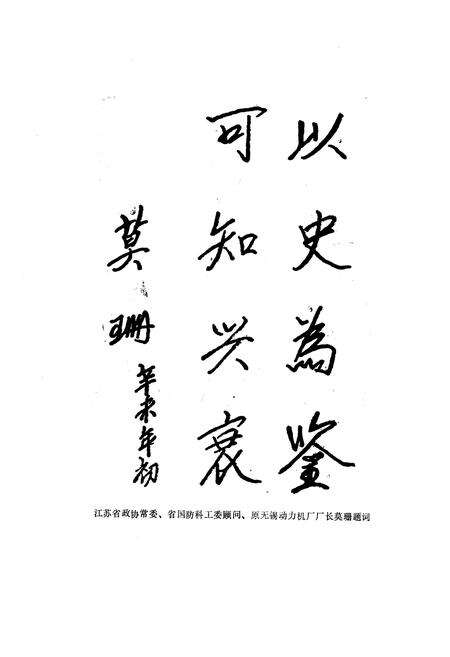 以史為鉴
可知兴衰
莫珊
辛未年初
江苏省政协常委、省国防科工委顾问、原无锡动力机厂厂长莫珊题词